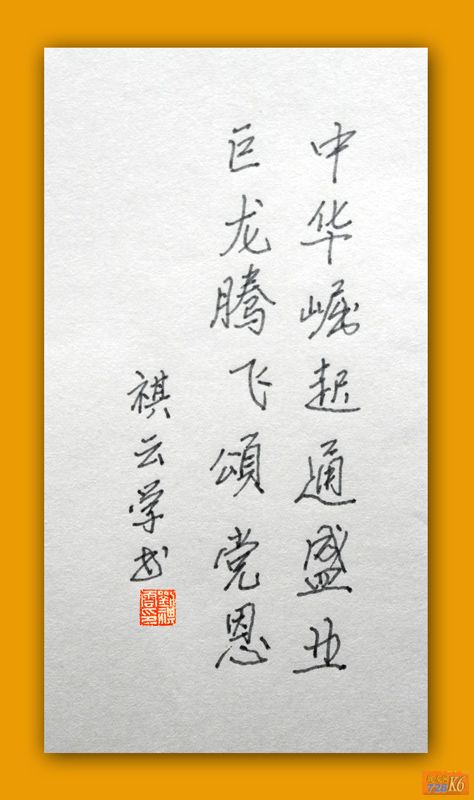 中华崛起通盛世
巨龙腾飞頌党恩
祺云学书
K6